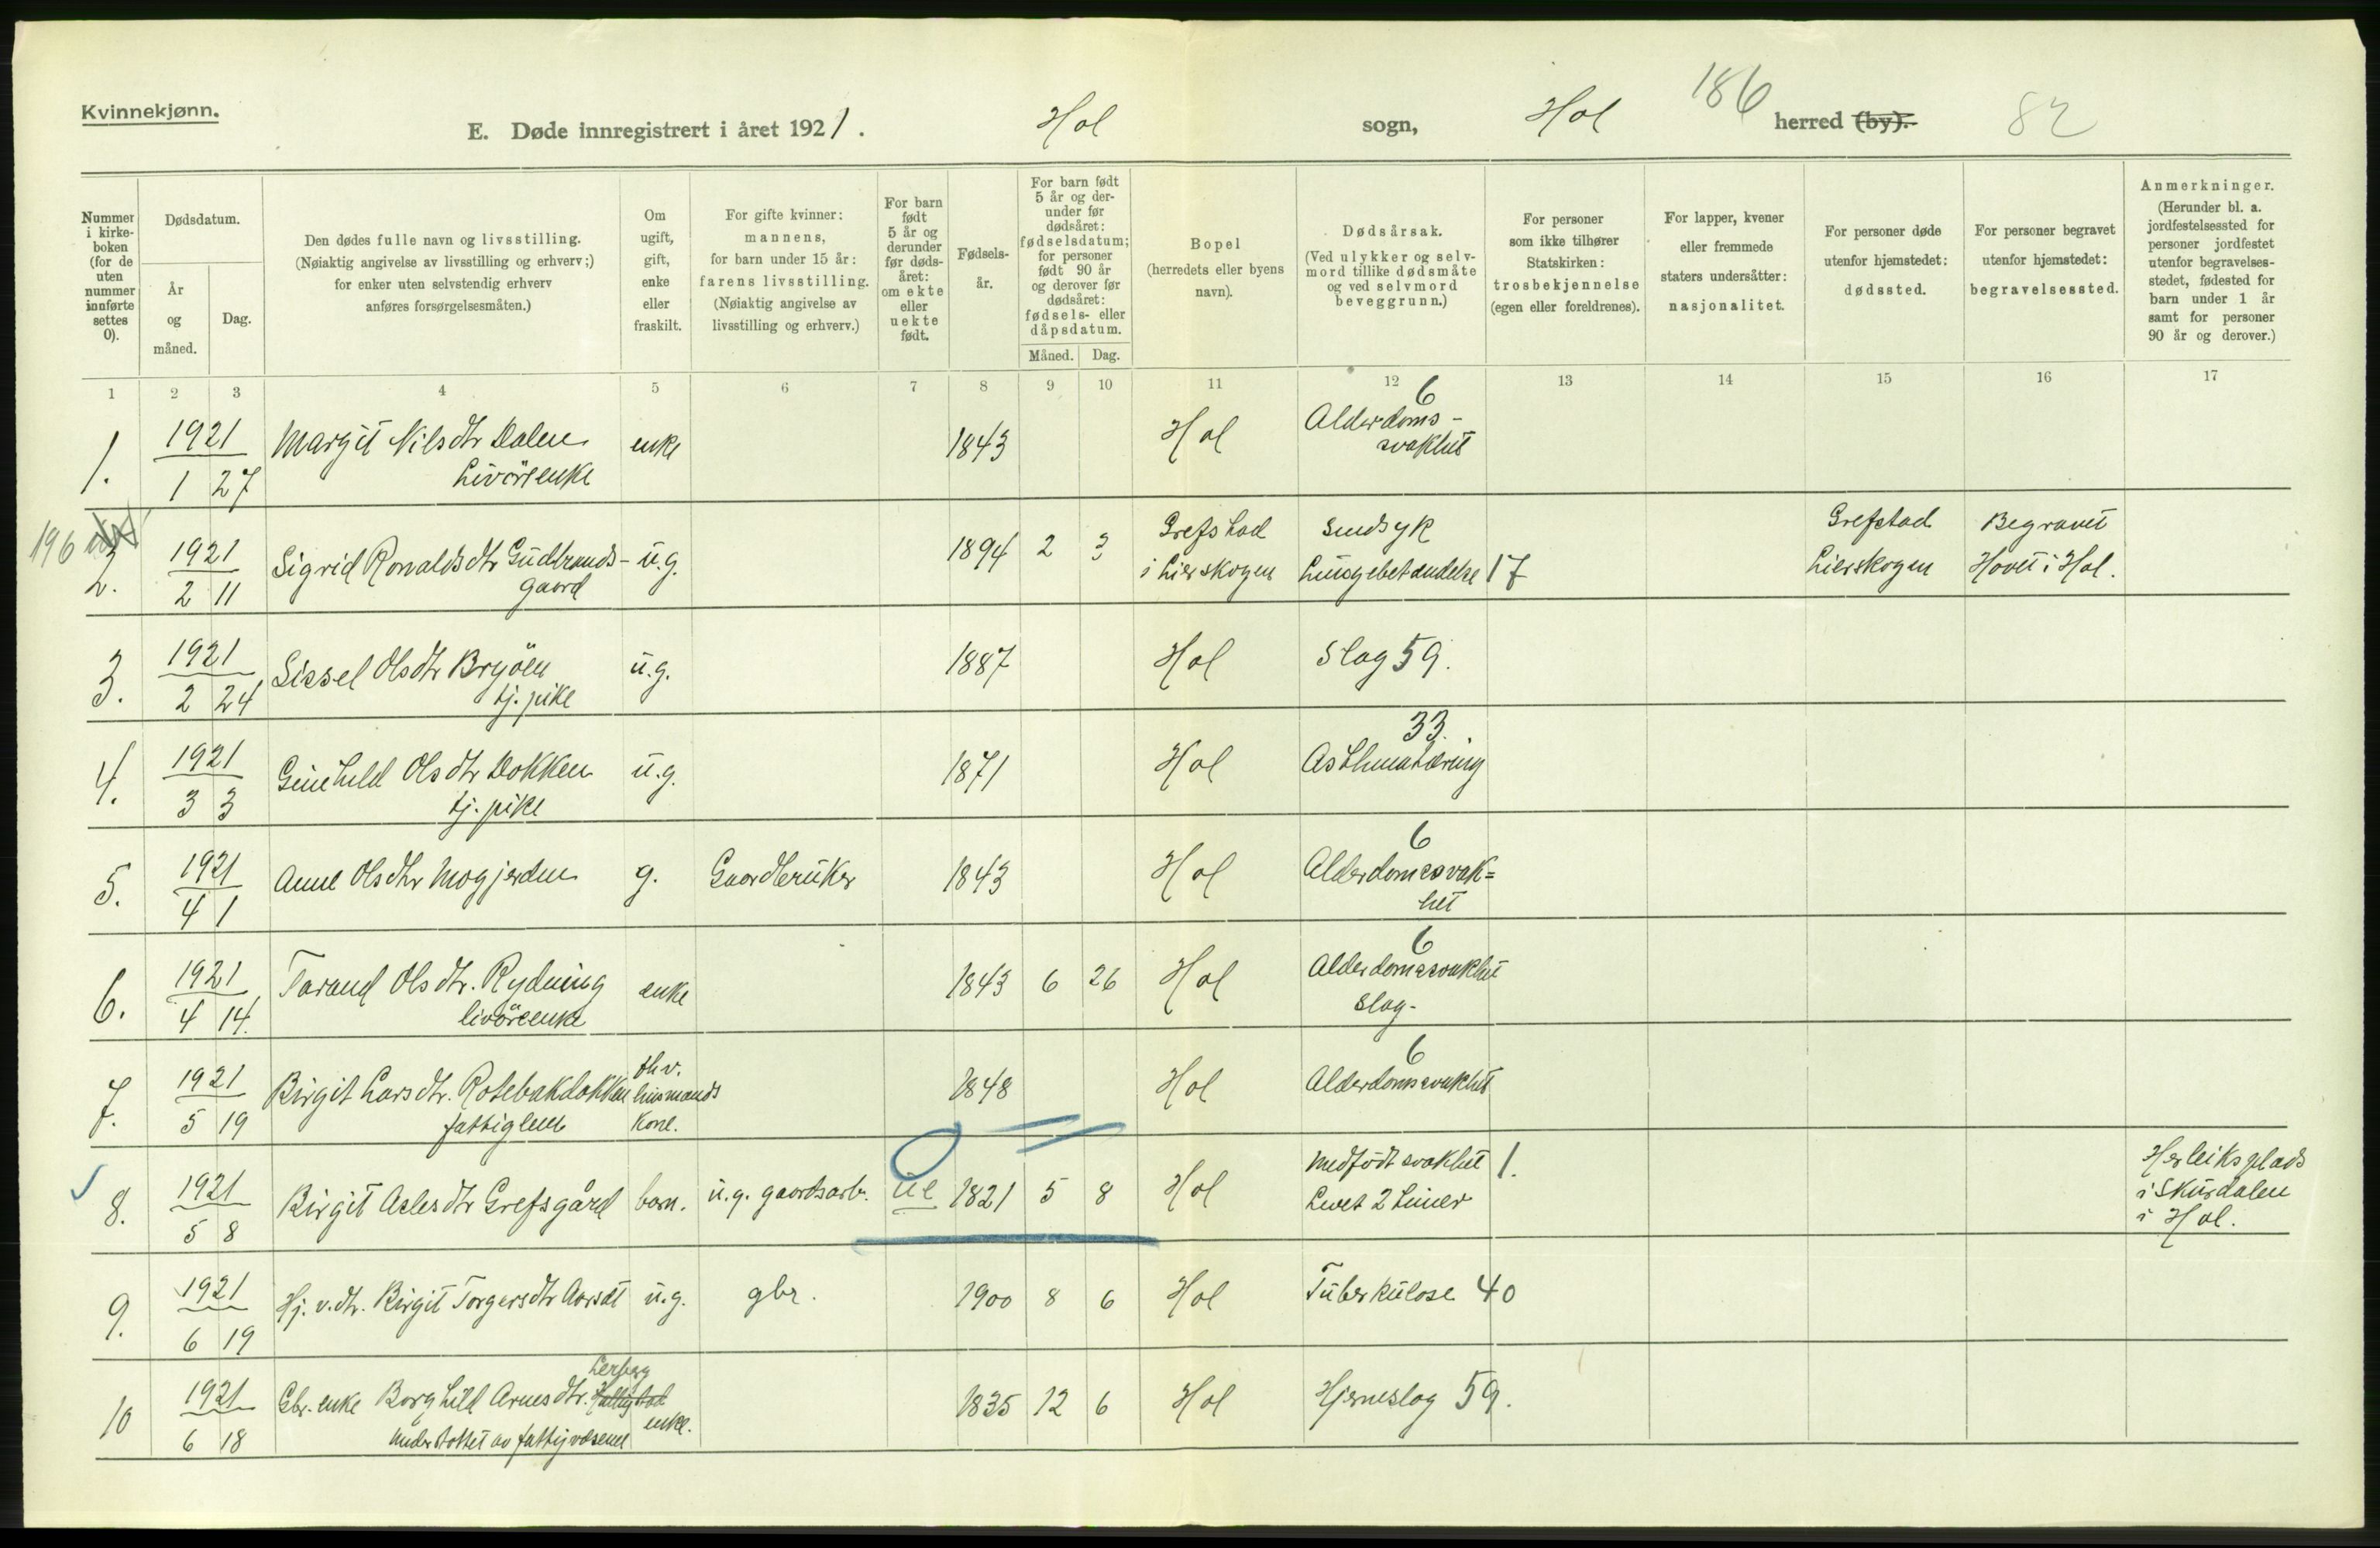 Kvinnekjønn.
E. Døde innregistrert i året 1921. Hol sogn, Hol herred (by).
186
82
Nummer i kirkeboken (for de uten nummer innførte settes 0).
Dødsdatum.
År og måned.
Dag.
Den dødes fulle navn og livsstilling.
(Nøiaktig angivelse av livsstilling og erhverv;)
for enker uten selvstendig erhverv
anføres forsørgelsesmåten.)
Om
ugift,
gift,
enke
eller
fraskilt.
For gifte kvinner:
mannens,
for barn under 15 år:
farens livsstilling.
(Nøiaktig angivelse av
livsstilling og erhverv.)
For barn
født
5 år og
derunder
før døds-
året:
om ekte
eller
uekte
født.
Fødsels-
år.
For barn født
5 år og der-
under før
dødsåret:
fødselsdatum;
for personer
født 90 år
og derover før
dødsåret:
fødsels- eller
dåpsdatum.
Måned. Dag.
Bopel
(herredets eller byens
navn).
Dødsårsak.
(Ved ulykker og selv-
mord tillike dødsmåte
og ved selvmord
beveggrunn.)
For personer
som ikke tilhører
Statskirken:
trosbekjennelse
(egen eller foreldrenes).
For lapper, kvener
eller fremmede
staters undersåtter:
nasjonalitet.
For personer døde
utenfor hjemstedet:
dødssted.
For personer begravet
utenfor hjemstedet:
begravelsessted.
Anmerkninger.
(Herunder bl. a.
jordfestelsessted for
personer jordfestet
utenfor begravelses-
stedet, fødested for
barn under 1 år
samt for personer
90 år og derover.)
1 2 3 4 5 6 7 8 9 10 11 12 13 14 15 16 17
1. 1921 1 27 Margit Nilsdtr Dalen enke 1843 Hol Alderdoms- 6
Livöreenke svakhet
196
2. 1921 2 11 Sigrid Ronaldsdtr Gudbrands- u.g. 1894 2 3 Grefstad Sindsyk Grefstad Begravet
gaard i Lierskogen Lungebetændelse 17 Lierskogen Hovet i Hol.
3. 1921 2 24 Sissel Olsdtr Bryöen u.g. 1887 Hol Slag 59.
tj. pike
4. 1921 3 3 Gunhild Olsdtr Dokken u.g. 1871 Hol 33. Asthmatæring
tj. pike
5. 1921 4 1 Anne Olsdtr Mogjerden g. Gaardbruker 1843 Hol 6 Alderdomssvak=
het
6. 1921 4 14. Tarand Olsdtr. Rydning enke 1843 6 26 Hol 6 Alderdomssvakhet
livöreenke slag-
7. 1921 5 19 Birgit Larsdtr. Rotebakdokken husmands 1848 Hol 6 Alderdomssvakhet
fattiglem kone.
8. 1921 5 8 Birgit Aslesdtr Grefsgård barn. u.g. gaardsarb. ue 1821 5 8 Hol Medfödt svakhet 1.
Levet 2 timer
Herleiksplads
i Skurdalen
i Hol.
9. 1921 6 19 Hj. v. dtr. Birgit Torgersdtr Aarset u.g. gbr. 1900 8 6 Hol Tuberkulose 40
10 1921 6 18 Gbr. enke Borghild Arnesdtr. Lerberg enke. 1835 12 6 Hol Hjerneslag 59.
understöttet av fattigvæsenet